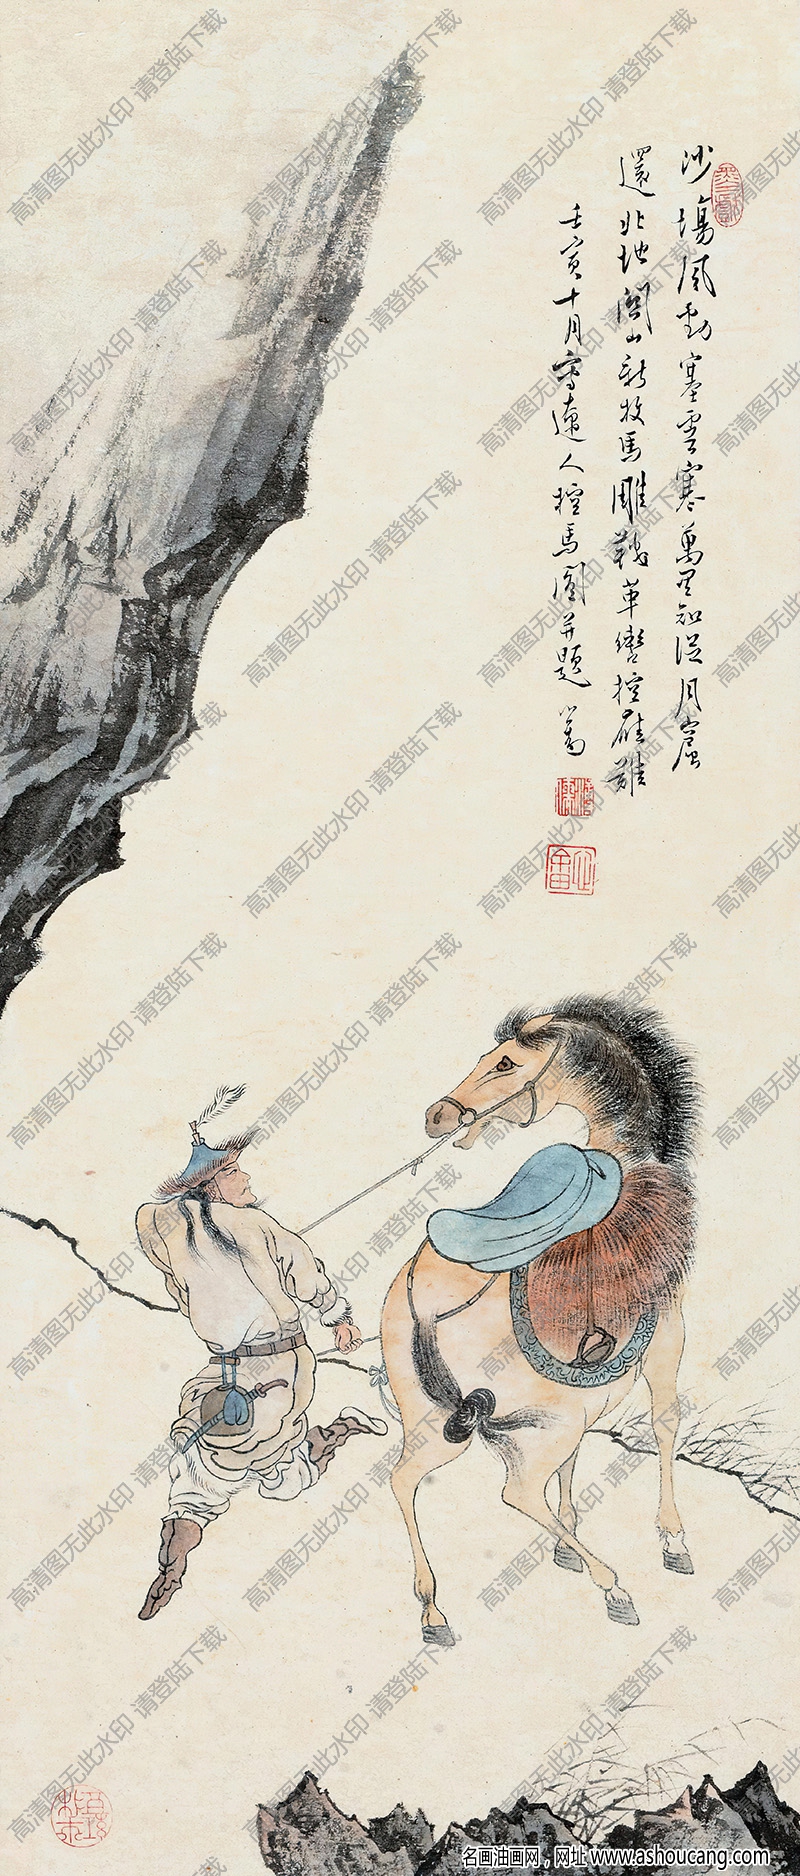 沙場風動塞雲寒萬里知從月窟
還北地關山新牧馬雕鞍革轡控應難
壬寅十月寫遠人控馬圖并題 心畬
溥儒
高清图无此水印 请登陆下载
名画油画网，网址 www.ashoucang.com